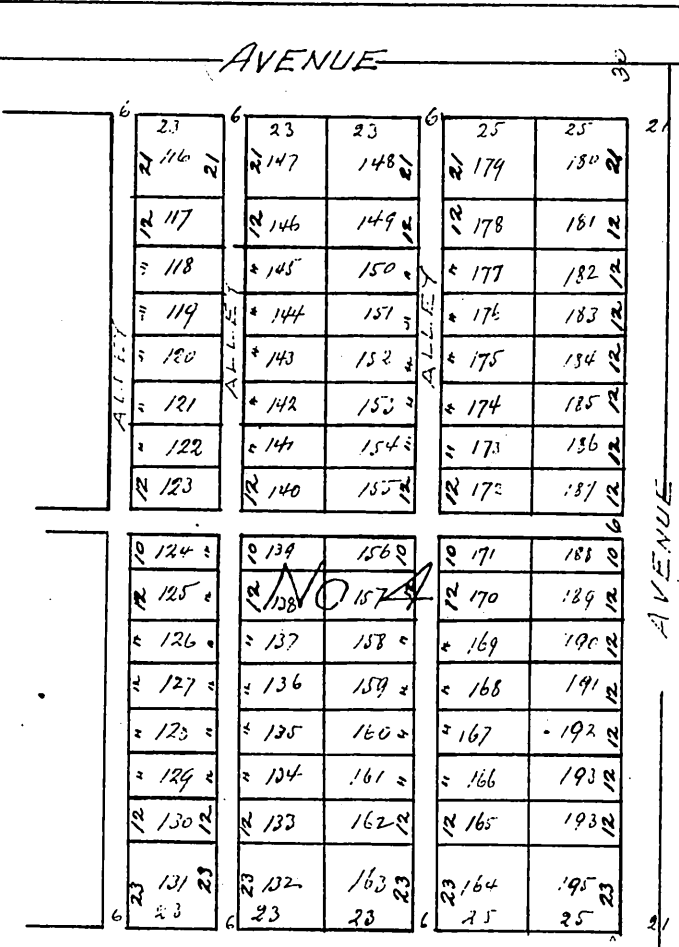 AVENUE 30
6 6 6
23 23 23 25 25 21
21 116 21 21 147 148 21 21 179 180 21
12 117 12 146 149 12 12 178 181 12
" 118 " 145 150 " " 177 182 12
" 119 " 144 151 " " 176 183 12
" 120 " 143 152 " " 175 184 12
" 121 " 142 153 " " 174 185 12
" 122 " 141 154 " " 173 186 12
12 123 12 140 155 12 12 172 187 12
ALLEY
ALLEY
ALLEY
6
AVENUE
10 124 " 10 139 156 10 10 171 188 10
12 125 " 12 138 157 12 170 189 12
No 4
" 126 " " 137 158 " " 169 190 12
" 127 " " 136 159 " " 168 191 12
" 128 " " 135 160 " " 167 192 12
" 129 " " 134 161 " " 166 193 12
12 130 12 12 133 162 12 12 165 193 12
23 131 23 23 132 163 23 23 164 195 23
23 23 23 25 25
6 6 6 21